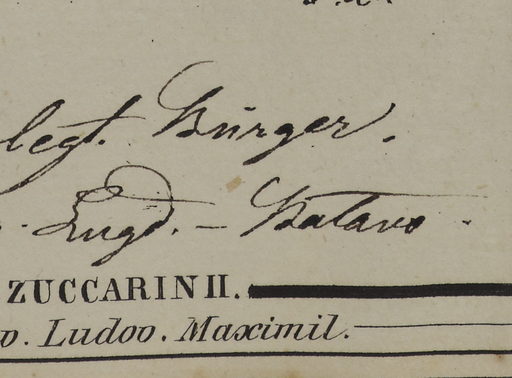 legt. Bürger.
Lugd. - Batavo.
ZUCCARINII.
v. Ludov. Maximil.